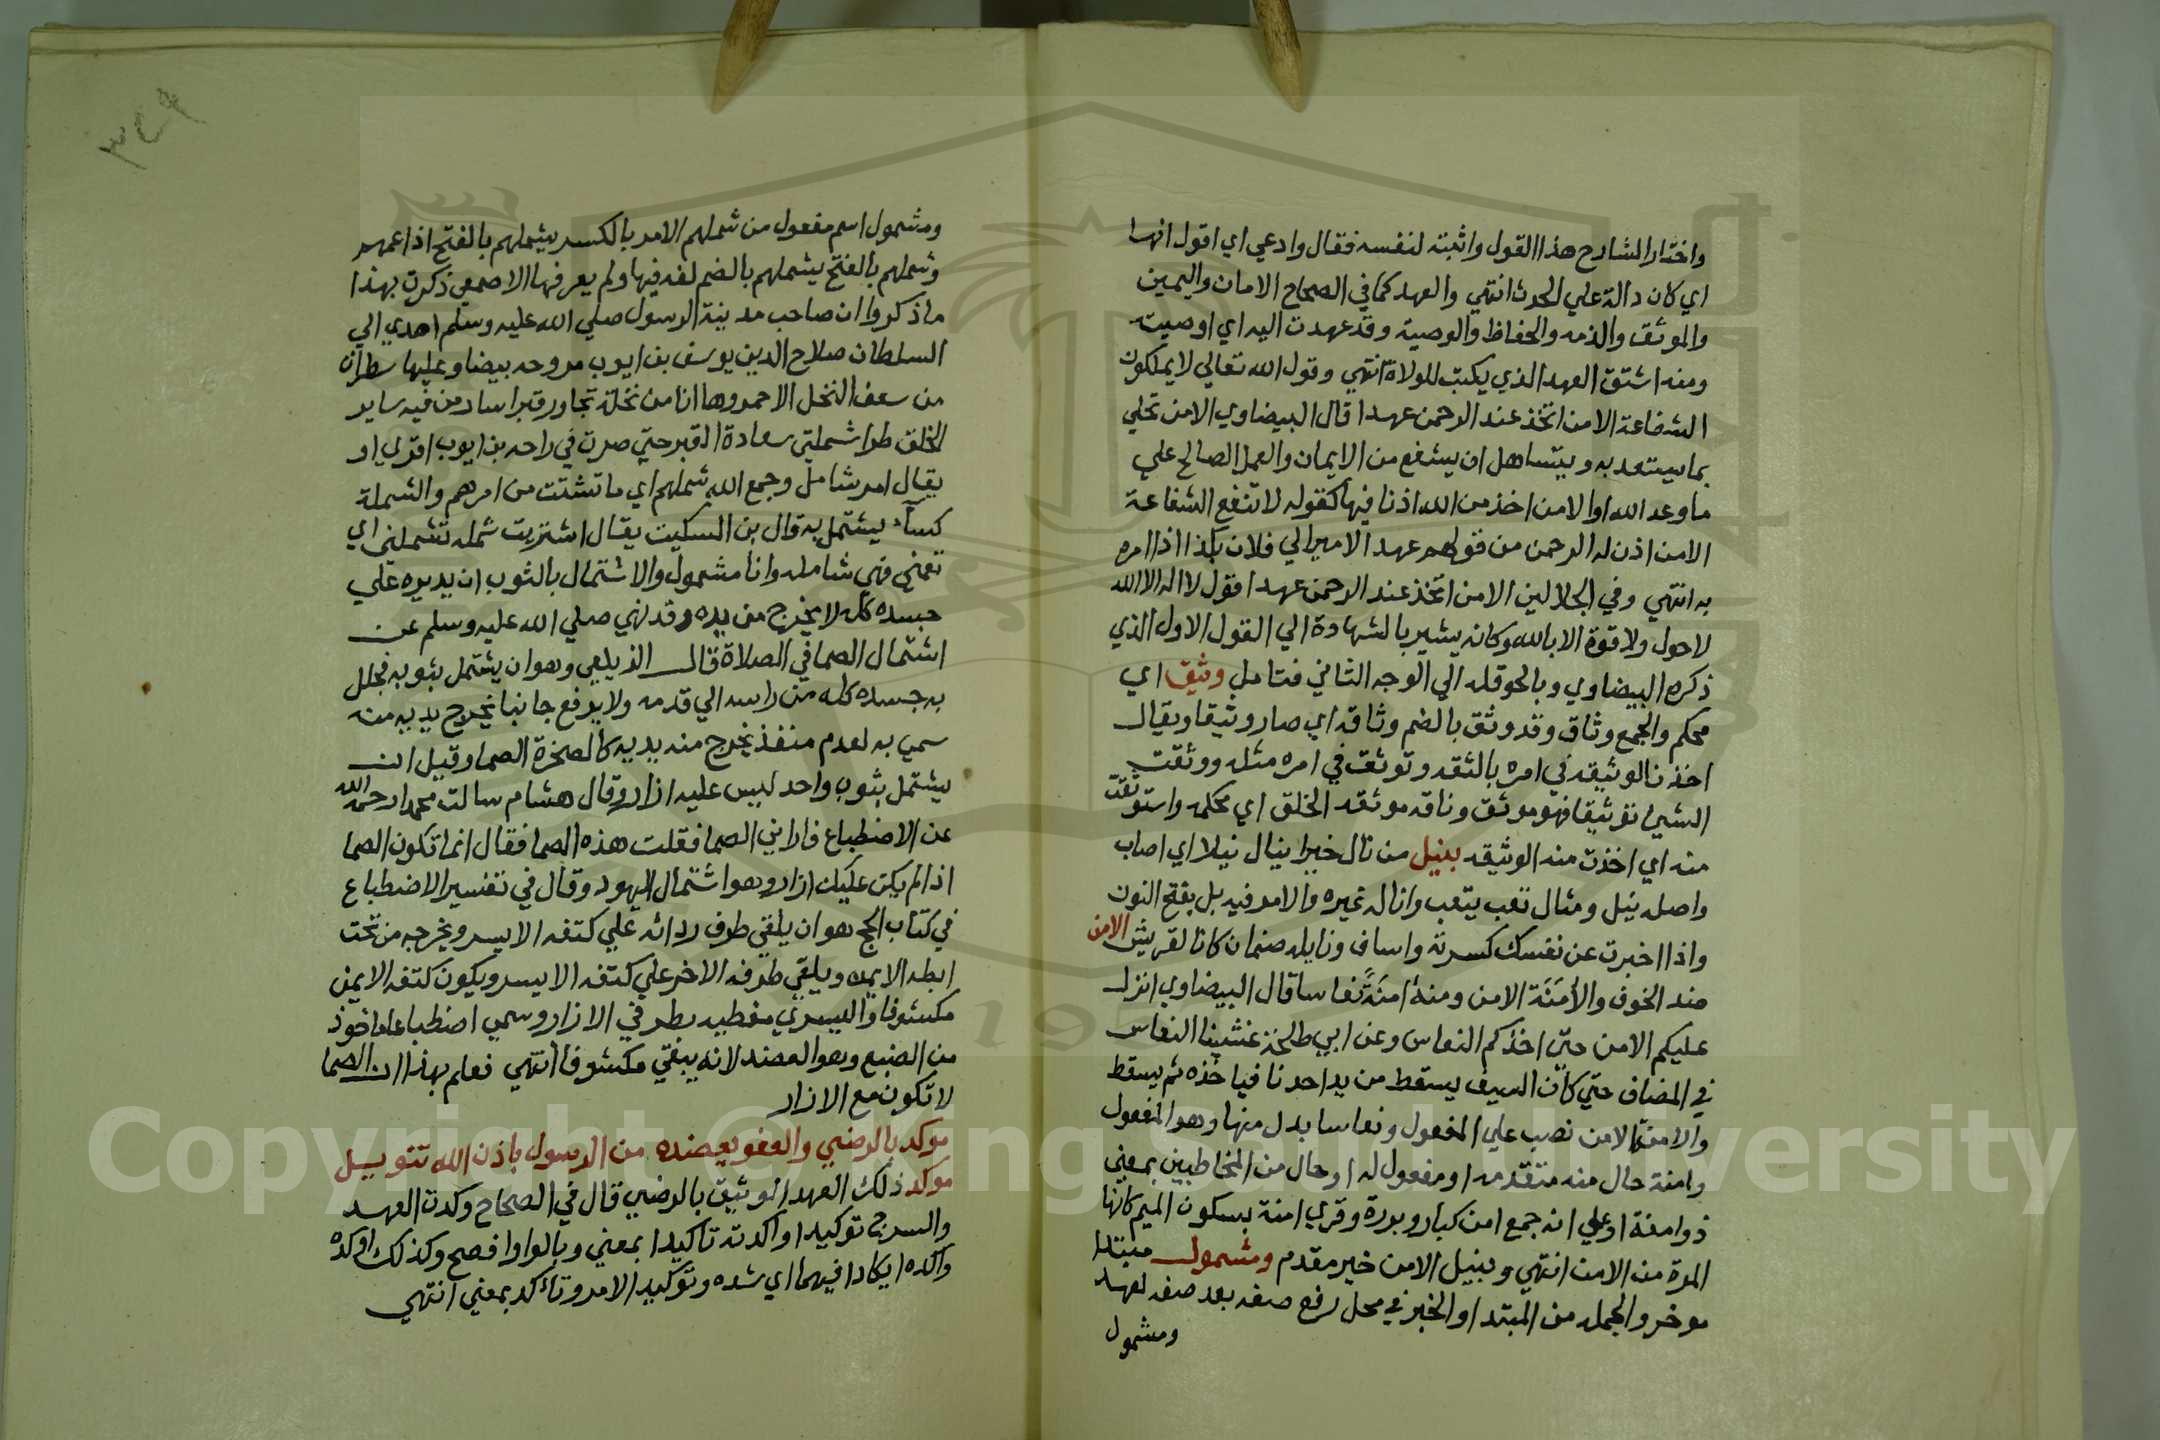 واختار الشارح هذا القول واثبته لنفسه فقال وادعي اي اقول انها
اي كان دالة علي الحدث انتهي والعهد كما في الصحاح الامان واليمين
والموثق والذمه والحفاظ والوصية وقد عهدت اليه اي اوصيته
ومنه اشتق العهد الذي يكتب للولاة انتهي وقول الله تعالي لا يملكون
الشفاعة الا من اتخذ عند الرحمن عهدا قال البيضاوي الا من تحلي
بما يستعد به ويتساهل ان يشفع من الايمان والعمل الصالح علي
ما وعد الله او الا من اخذ من الله اذنا فيها كقوله لا تنفع الشفاعة
الا من اذن له الرحمن من قولهم عهد الامير الي فلان بكذا اذا امره
به انتهي وفي الجلالين الا من اتخذ عند الرحمن عهدا اقول لا اله الا الله
لا حول ولا قوة الا بالله وكانه يشير بالشهادة الي القول الاول الذي
ذكره البيضاوي وبالحوقله الي الوجه الثاني فتامل وثيق اي
محكم والجمع وثاق وقد وثق بالضم وثاقه اي صار وثيقا ويقال
اخذنا لوثيقه في امره بالثقه وتوثق في امره مثله ووثقت
الشي توثيقا فهو موثق وناقه موثقه الخلق اي محكمه واستوثقت
منه اي اخذت منه الوثيقه بنيل من نال خيرا ينال نيلا اي اصاب
واصله نيل ومثال تعب يتعب واناله غيره والامر فيه بل بفتح النون
واذا اخبرت عن نفسك كسرته واساف ونايله صنمان كانا لقريش الامن
ضد الخوف والأَمَنَة الامن ومنه أمنَةً نعاسا قال البيضاوي انزل
عليكم الامن حتي اخذكم النعاس وعن ابي طلحة غشينا النعاس
في المصاف حتي كان السيف يسقط من يد احدنا فياخذه ثم يسقط
والامنة الامن نصب علي المفعول ونعاسا بدل منها وهو المفعول
وامنة حال منه متقدمه او مفعول له او حال من المخاطبين بمعني
ذوا امنة او علي انه جمع امن كبار وبررة وقري امنة بسكون الميم كانها
المرة من الامن انتهي وبنيل الامن خبر مقدم ومشمول مبتدا
موخر والجمله من المبتدا والخبر في محل رفع صفه بعد صفه لعهد
ومشمول
٣٤٩
ومشمول اسم مفعول من شملهم الامر بالكسر يشملهم بالفتح اذا عمهم
وشملهم بالفتح يشملهم بالضم لغه فيها ولم يعرفها الاصمعي ذكرت بهذا
ما ذكروا ان صاحب مدينة الرسول صلي الله عليه وسلم اهدي الي
السلطان صلاح الدين يوسف بن ايوب مروحه بيضا وعليها سطران
من سعف النخل الاحمر وها انا من نخلة تجاور قبرا ساد من فيه ساير
الخلق طرا شملتني سعادة القبر حتي صرت في راحه بن ايوب اقري او
يقال امر شامل وجمع الله شملهم اي ما تشتت من امرهم والشملة
كساء يشتمل به قال بن السكيت يقال اشتريت شمله تشملني اي
تعمني فهي شامله وانا مشمول والاشتمال بالثوب ان يديره علي
جسده كله لا يخرج منه يده وقد نهي صلي الله عليه وسلم عن
اشتمال الصما في الصلاة قال الزيلعي وهو ان يشتمل بثوبه فيجلل
به جسده كله من راسه الي قدمه ولا يرفع جانبا يخرج يديه منه
سمي به لعدم منفذ يخرج منه يديه كالصخرة الصما وقيل ان
يشتمل بثوب واحد ليس عليه ازار وقال هشام سالت محمدا رحمه الله
عن الاضطباع فاراني الصما فقلت هذه الصما فقال انما تكون الصما
اذا لم يكن عليك ازار وهو اشتمال اليهود وقال في تفسير الاضطباع
في كتاب الحج هو ان يلقي طرف ردائه علي كتفه الايسر ويخرجه من تحت
ابطه الايمن ويلقي طرفه الاخر علي كتفه الايسر ويكون كتفه الايمن
مكشوفا واليسري مغطيه بطرفي الازار وسمي اضطباعا ماخوذ
من الضبع وهو العضد لانه يبقي مكشوفا انتهي فعلم بهذا ان الصما
لا تكون مع الازار
موكد بالرضي والعفو يعضده من الرسول باذن الله تنويل
موكد ذلك العهد الوثيق بالرضي قال في الصحاح وكدت العهد
والسرج توكيدا واكدته تاكيدا بمعني وبالواو افصح وكذلك اوكده
واكده ايكادا فيهما اي شده وتوكيد الامر وتاكد بمعني انتهي